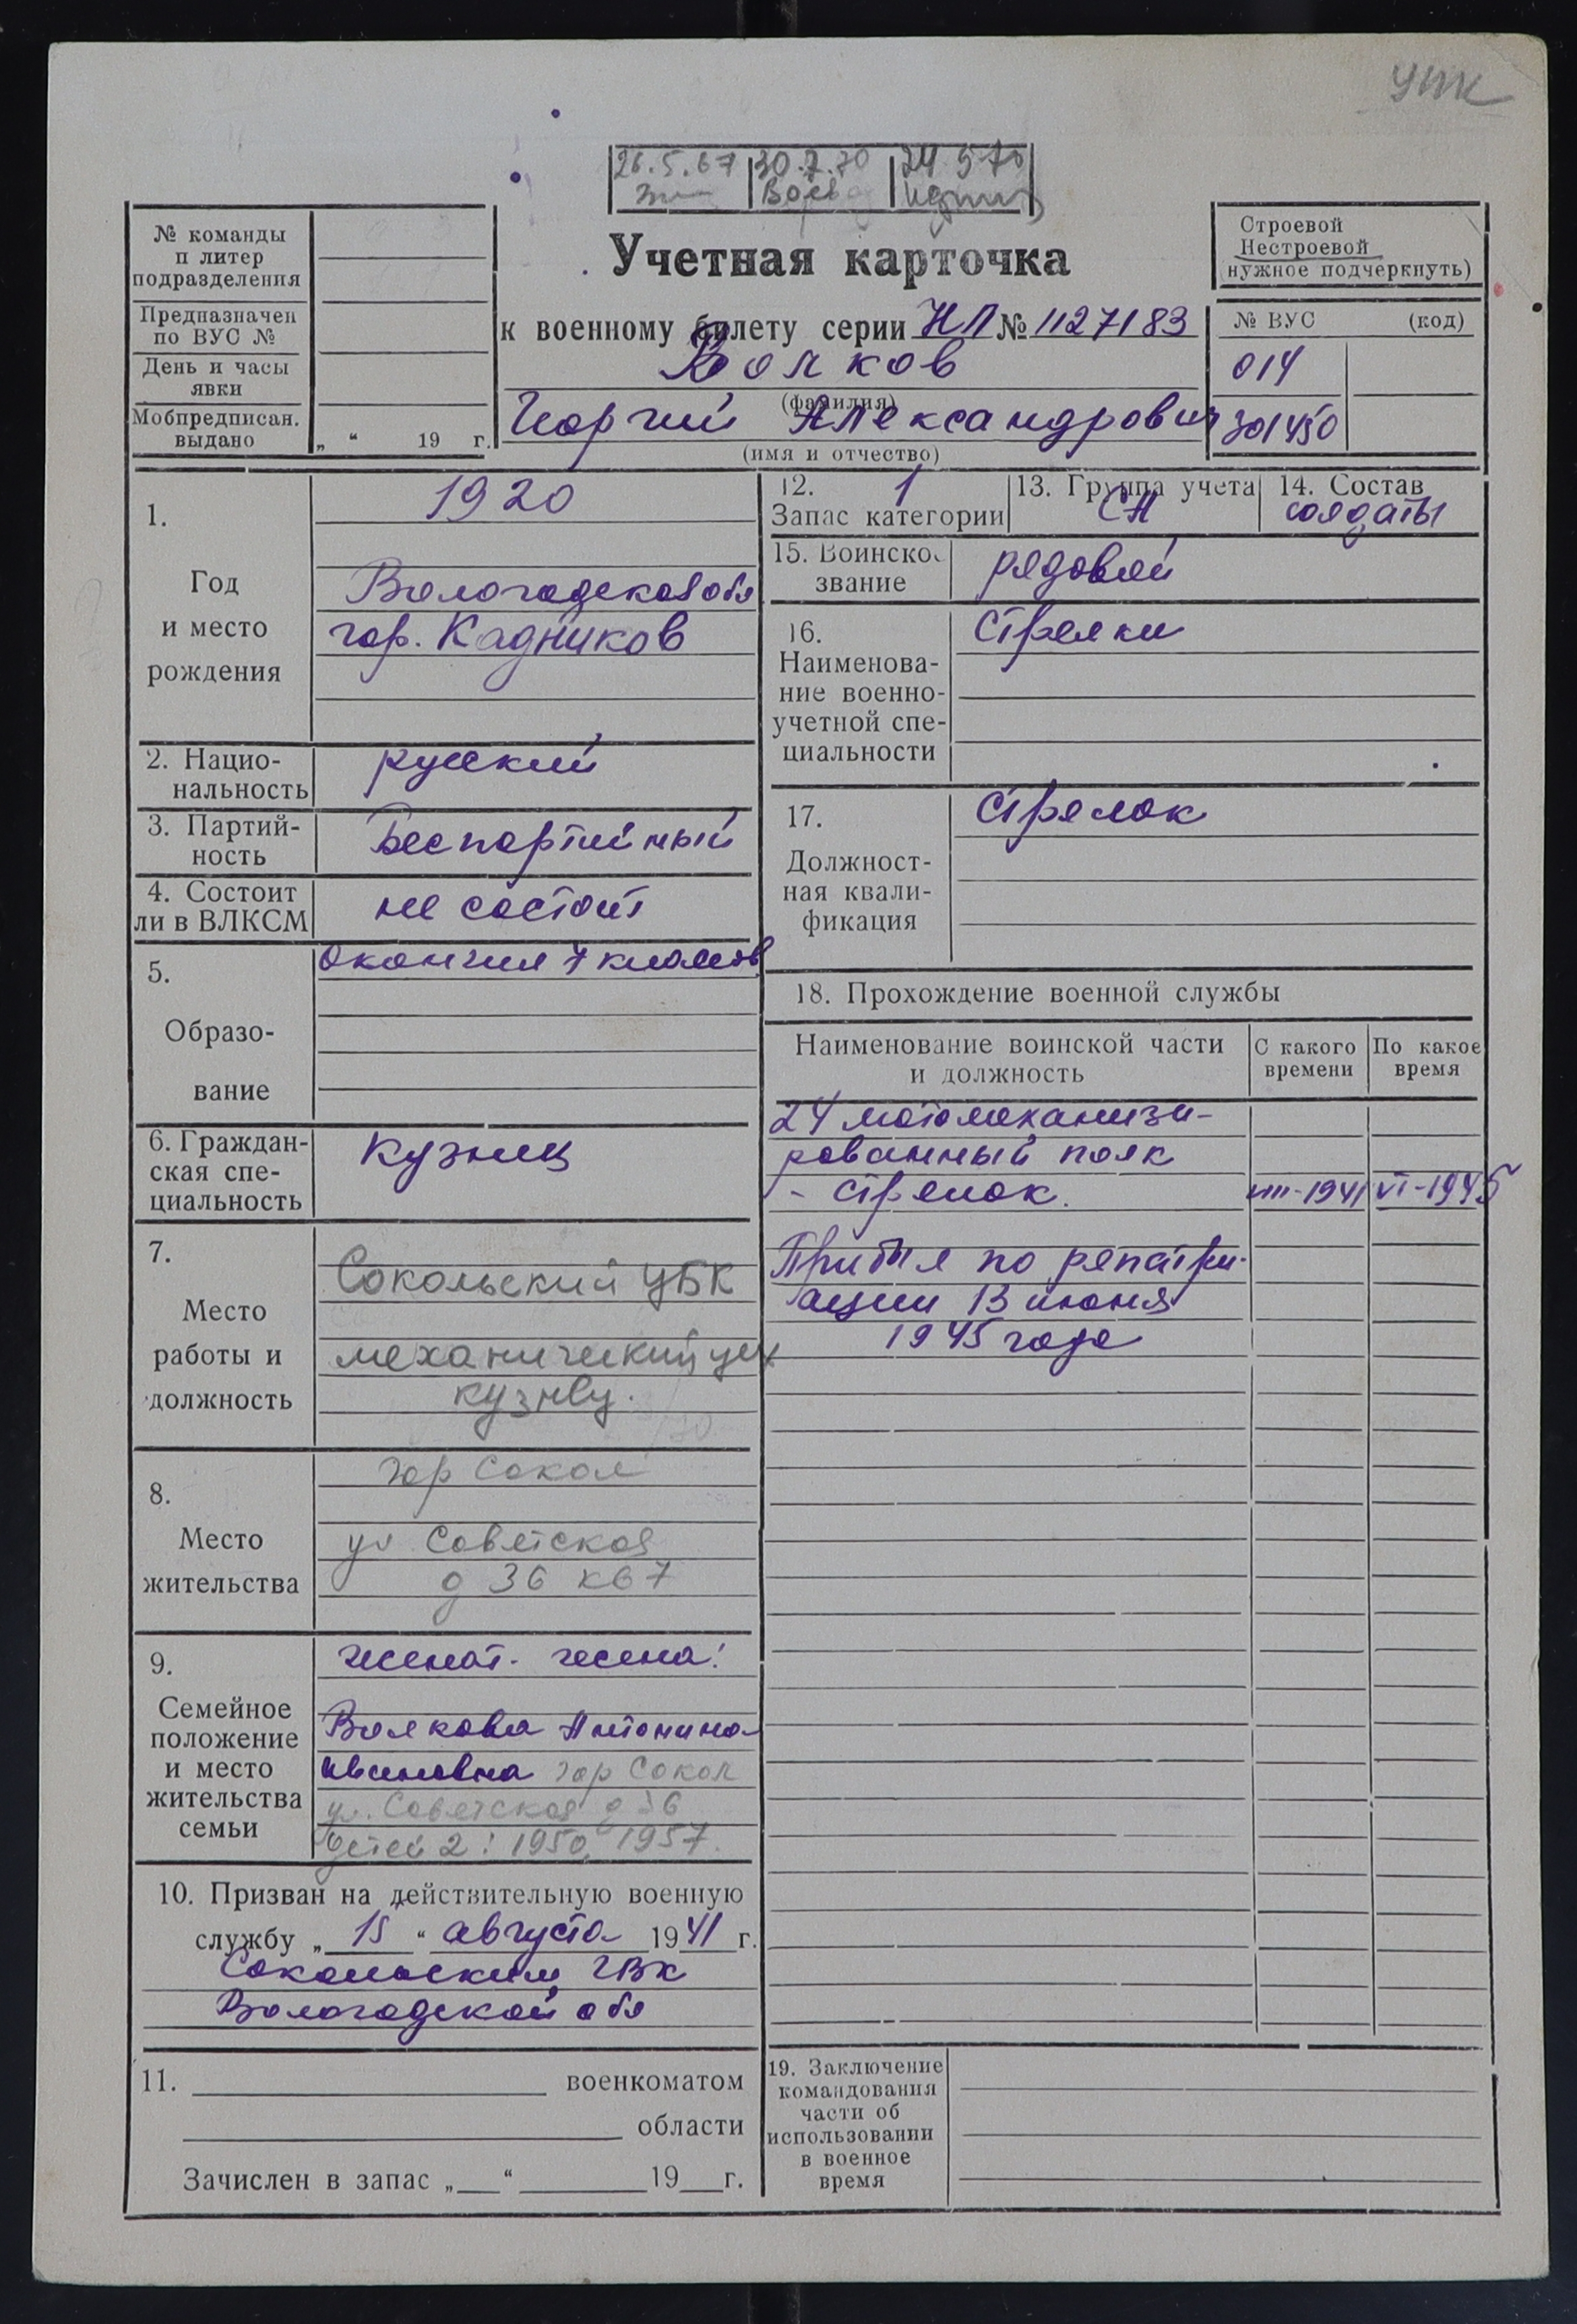 УПК
26.5.67 30.7.70 24 5 70
№ команды
п литер
подразделения
Предназначен
по ВУС №
День и часы
явки
Мобпредписан.
выдано „ “ 19 г.
Учетная карточка
к военному билету серии НЛ № 1127183
Волков
(фамилия)
Георгий Александрович
(имя и отчество)
Строевой
Нестроевой
нужное подчеркнуть)
№ ВУС (код)
014
301450
1.
Год
и место
рождения
1920
Вологодская обл
гор. Кадников
2. Нацио-
нальность
русский
3. Партий-
ность
Беспартийный
4. Состоит
ли в ВЛКСМ
не состоит
5.
Образо-
вание
Окончил 7 классов
6. Граждан-
ская спе-
циальность
кузнец
7.
Место
работы и
должность
Сокольский ЦБК
механический цех
кузнец.
8.
Место
жительства
гор Сокол
ул Советская
д 36 кв 7
9.
Семейное
положение
и место
жительства
семьи
женат. жена:
Волкова Антонина
Ивановна гор Сокол
ул. Советская д 36
детей 2: 1950, 1957.
10. Призван на действительную военную
службу „ 15 “ августа 1941 г.
Сокольским ГВК
Вологодской обл
11. военкоматом
области
Зачислен в запас „ “ 19 г.
12. 1
Запас категории
13. Группа учета
СА
14. Состав
солдаты
15. Воинское
звание
рядовой
16.
Наименова-
ние военно-
учетной спе-
циальности
Стрелки
17.
Должност-
ная квали-
фикация
Стрелок
18. Прохождение военной службы
Наименование воинской части
и должность
С какого
времени
По какое
время
24 мотомеханизи-
рованный полк
- стрелок. VIII-1941 VI-1945
Прибыл по репатри-
ации 13 июня
1945 года
19. Заключение
командования
части об
использовании
в военное
время